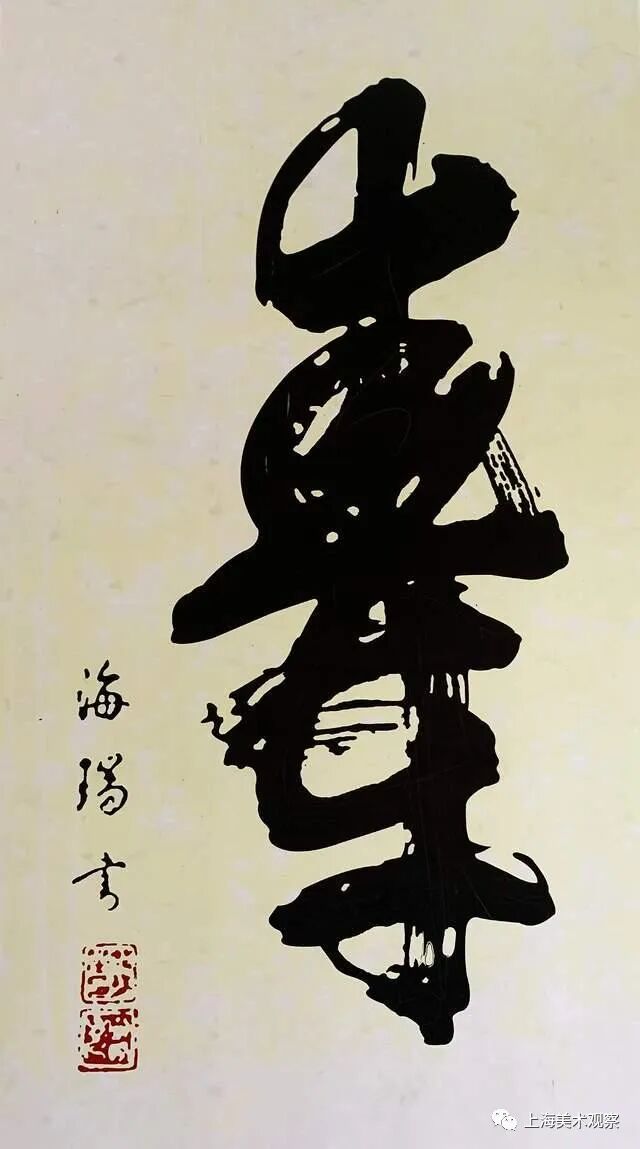 壽
海瑞書
上海美术观察